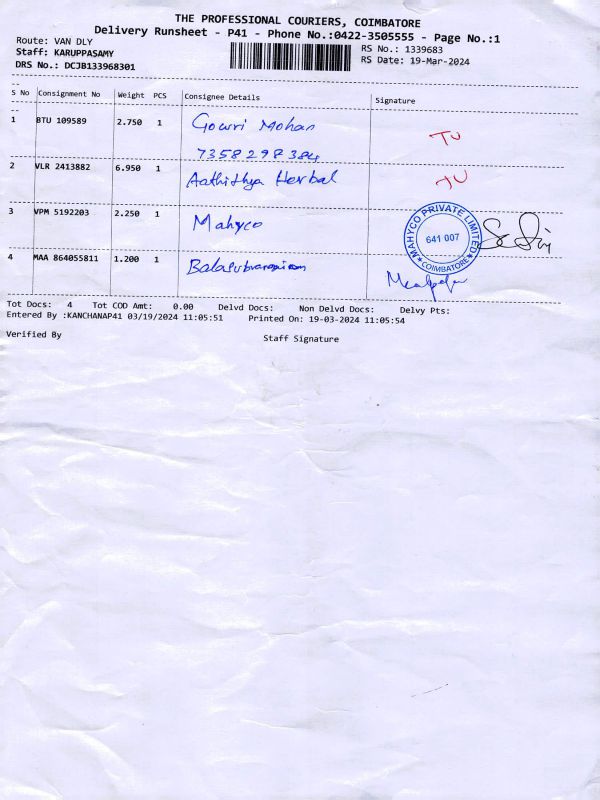 THE PROFESSIONAL COURIERS, COIMBATORE
Delivery Runsheet - P41 - Phone No.:0422-3505555 - Page No.:1
Route: VAN DLY
RS No.: 1339683
Staff: KARUPPASAMY
RS Date: 19-Mar-2024
DRS No.: DCJB133968301
S No Consignment No Weight PCS Consignee Details Signature
1 BTU 109589 2.750 1 Gowri Mohan
7358298384
TU
2 VLR 2413882 6.950 1 Aathithya Herbal
TU
3 VPM 5192203 2.250 1 Mahyco
MAHYCO PRIVATE LIMITED
641 007
★ COIMBATORE ★
4 MAA 864055811 1.200 1
Tot Docs: 4 Tot COD Amt: 0.00 Delvd Docs: Non Delvd Docs: Delvy Pts:
Entered By :KANCHANAP41 03/19/2024 11:05:51 Printed On: 19-03-2024 11:05:54
Verified By Staff Signature